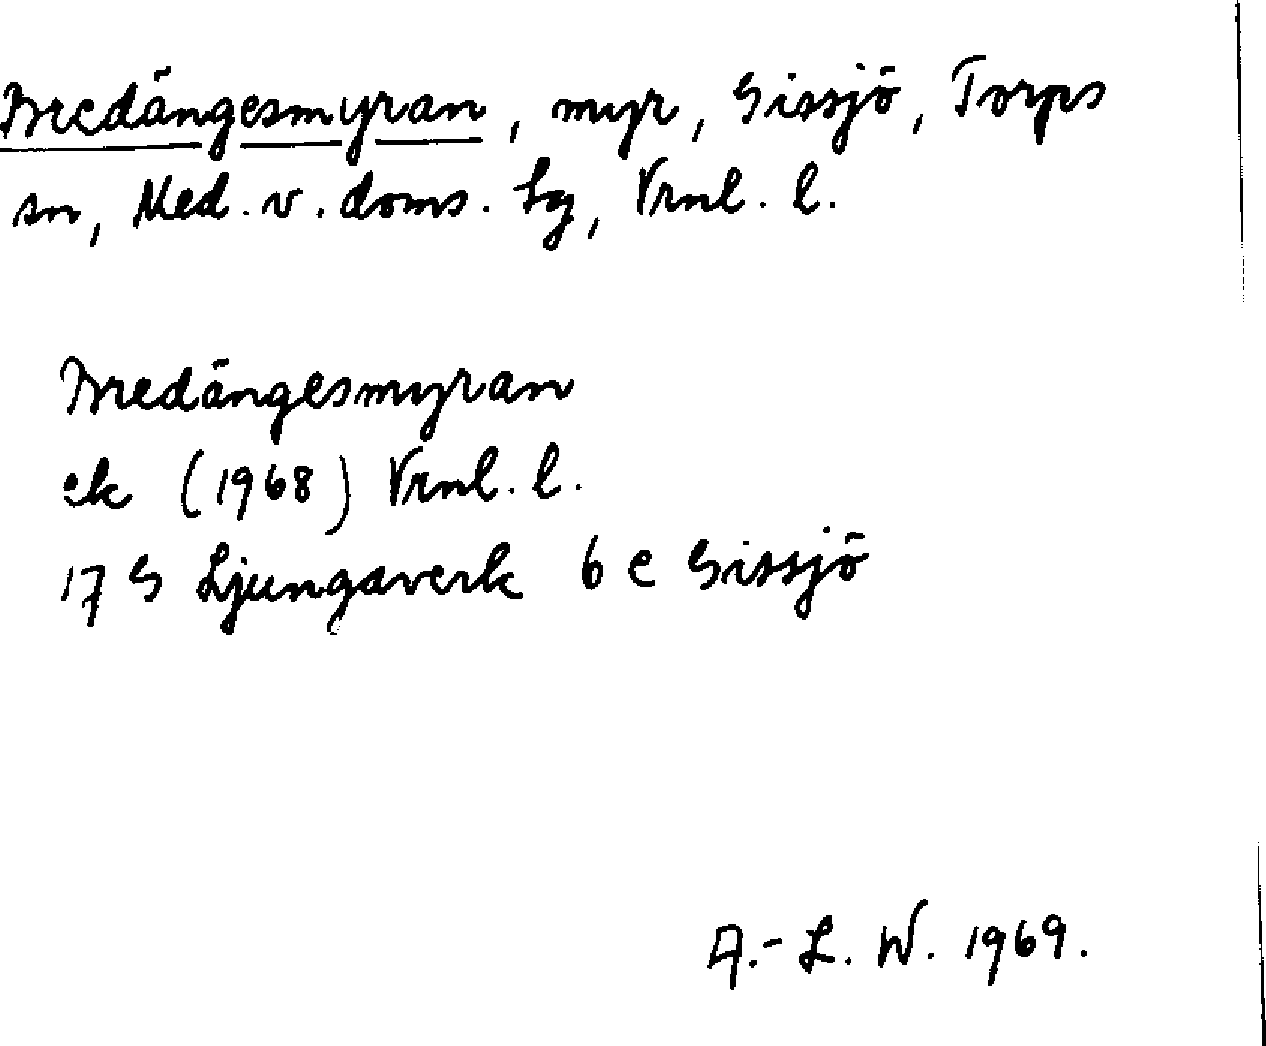 Bredängesmyran, myr, Sissjö, Torps
sn, Med. v. doms. tg, Vrnl. l.
Bredängesmyran
ek (1968) Vrnl. l.
17 S Ljungaverk 6 e Sissjö
A.-L. W. 1969.